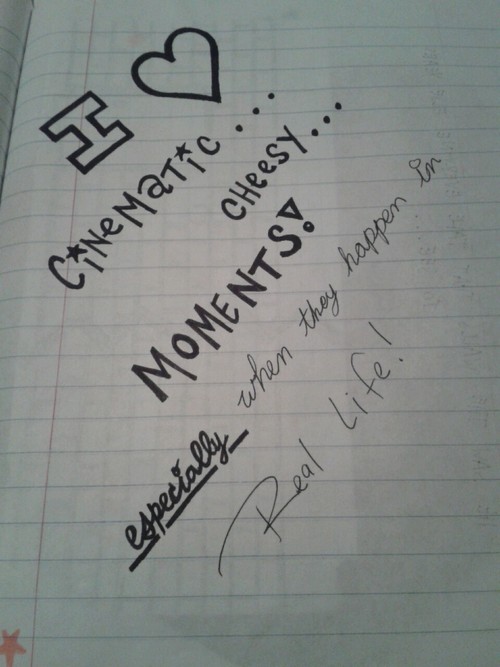 I ♡
CiNeMaTiC ...
CHeeSY...
MOMENTS!
especially when they happen in
Real Life!